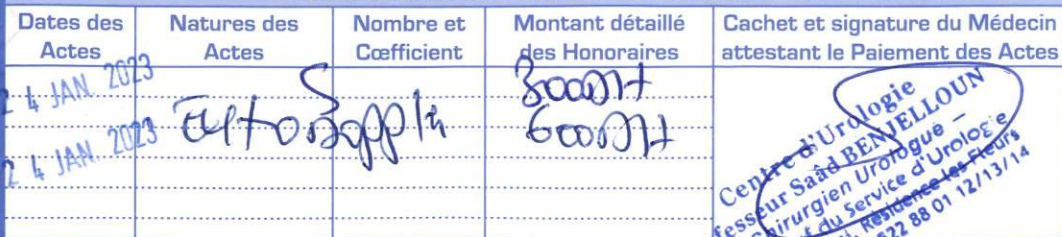 Dates des Actes
Natures des Actes
Nombre et Cœfficient
Montant détaillé des Honoraires
Cachet et signature du Médecin attestant le Paiement des Actes
24 JAN. 2023
S
300DH
24 JAN. 2023
600DH
Centre d'Urologie
fesseur Saâd BENJELLOUN
Chirurgien Urologue -
du Service d'Urologie
Résidence les Fleurs
22 88 01 12/13/14